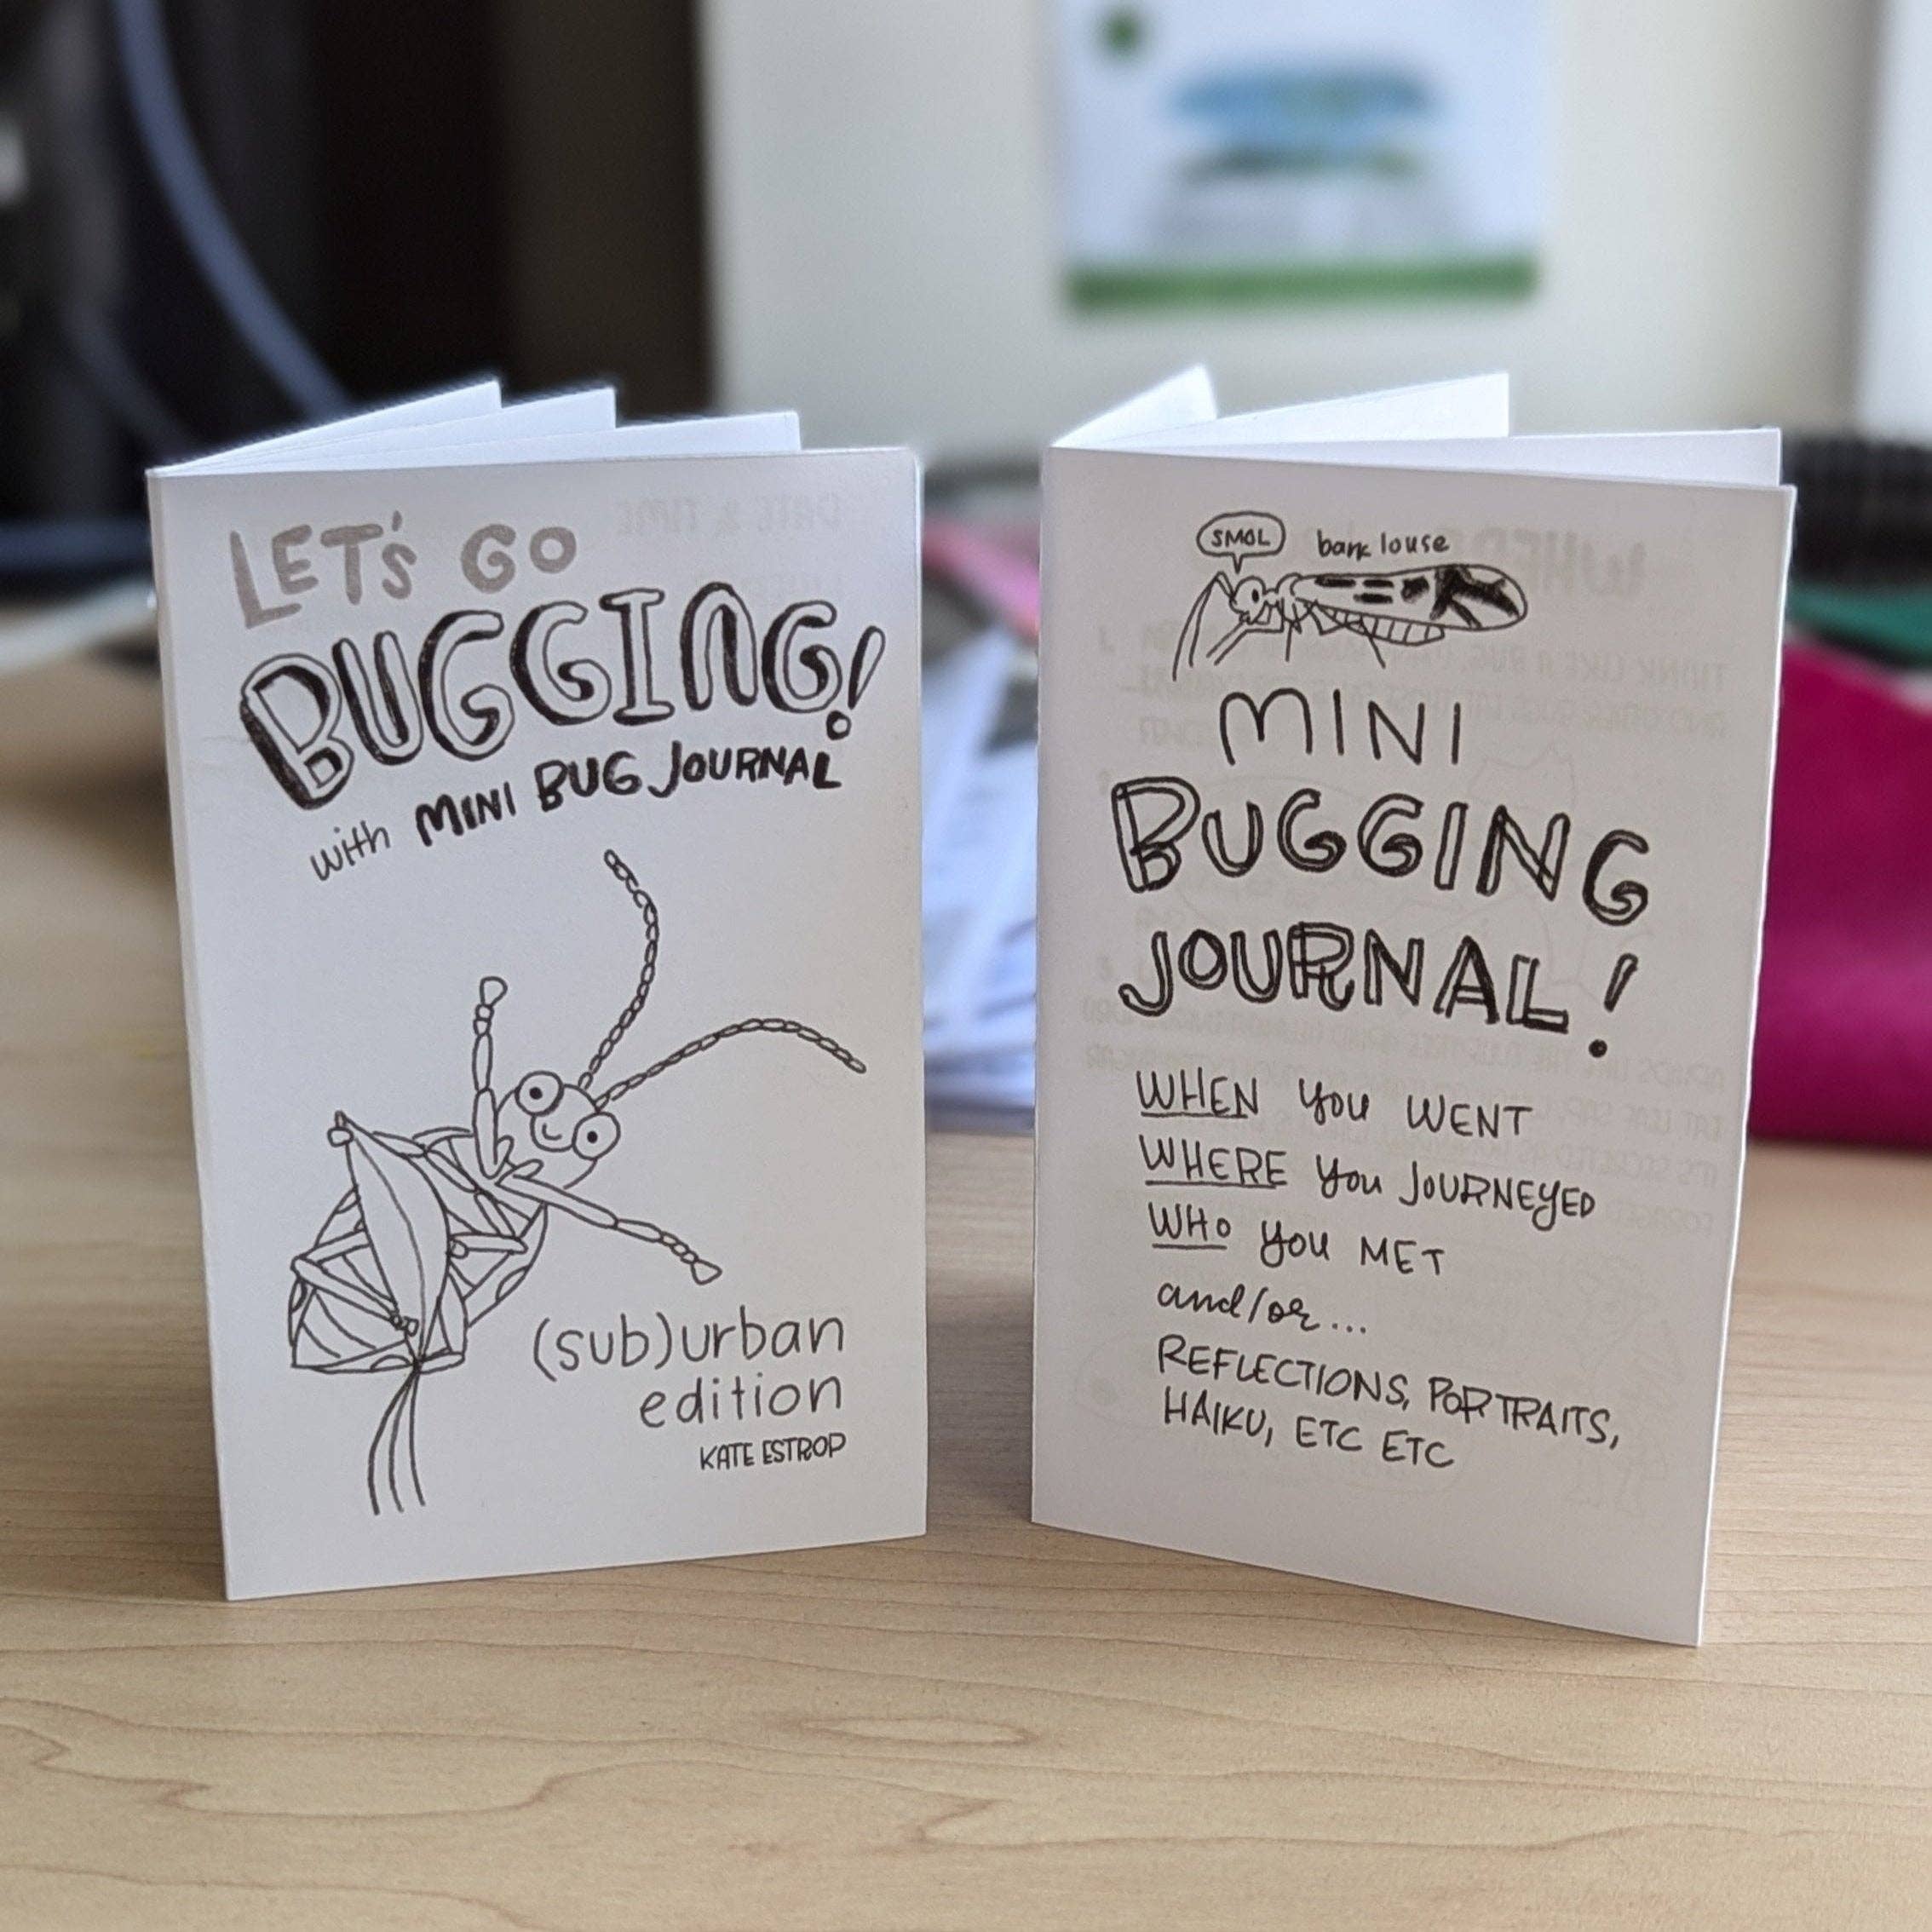 LET'S GO
BUGGING!
with MINI BUG JOURNAL
(sub)urban
edition
KATE ESTROP
SMOL
bark louse
MINI
BUGGING
JOURNAL!
WHEN you WENT
WHERE you JOURNEYED
WHO you MET
and/or...
REFLECTIONS, PORTRAITS,
HAIKU, ETC ETC